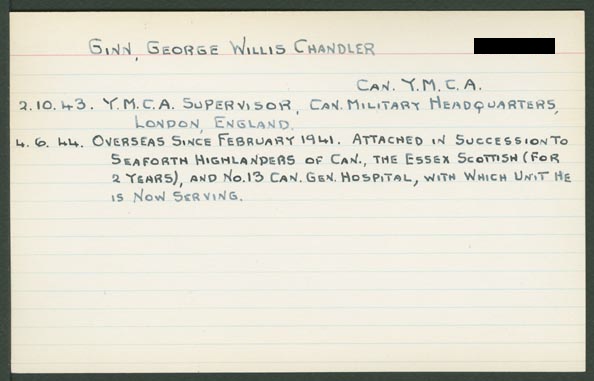 GINN, GEORGE WILLIS CHANDLER
CAN. Y.M.C.A.
2.10.43. Y.M.C.A. SUPERVISOR, CAN. MILITARY HEADQUARTERS,
LONDON, ENGLAND.
4.6.44. OVERSEAS SINCE FEBRUARY 1941. ATTACHED IN SUCCESSION TO
SEAFORTH HIGHLANDERS OF CAN., THE ESSEX SCOTTISH (FOR
2 YEARS), AND NO.13 CAN. GEN. HOSPITAL, WITH WHICH UNIT HE
IS NOW SERVING.